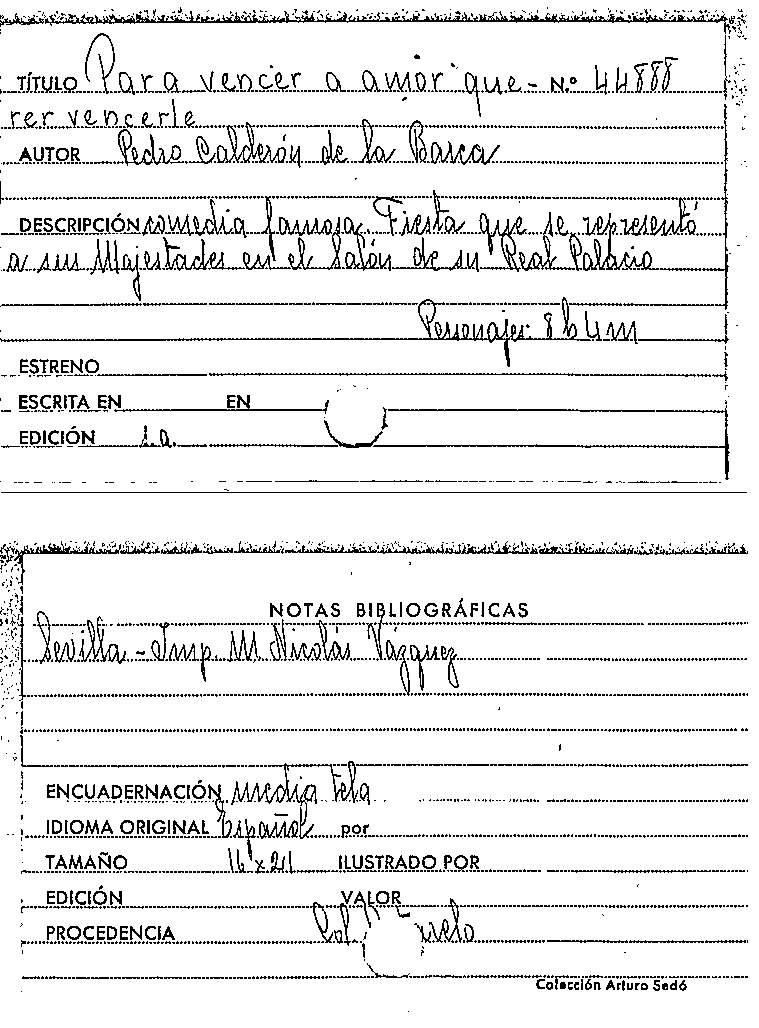 TÍTULO Para vencer a amor que- N.º 44888
rer vencerle
AUTOR Pedro Calderón de la Barca
DESCRIPCIÓN comedia famosa. Fiesta que se representó
a sus Majestades en el Salón de su Real Palacio
Personajes: 8 h 4 m
ESTRENO
ESCRITA EN EN
EDICIÓN s.a.
NOTAS BIBLIOGRÁFICAS
Sevilla - Imp. M. Nicolás Vázquez
ENCUADERNACIÓN media tela
IDIOMA ORIGINAL Español por
TAMAÑO 16 x 21 ILUSTRADO POR
EDICIÓN VALOR
PROCEDENCIA Col
Colección Arturo Sedó